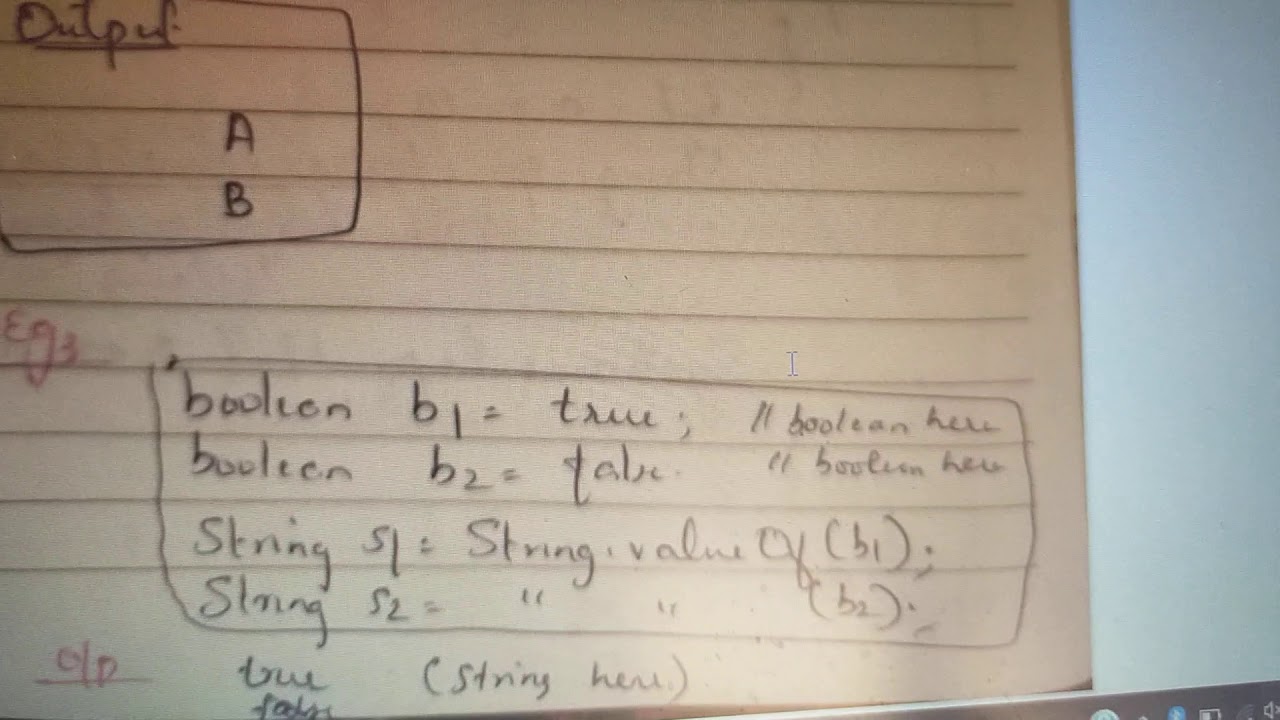 Output
A
B
Eg3
boolean b1 = true; // boolean here
boolean b2 = false. // boolean here
String s1 = String.valueOf(b1);
String s2 = " " (b2);
O/P true (String here)
false